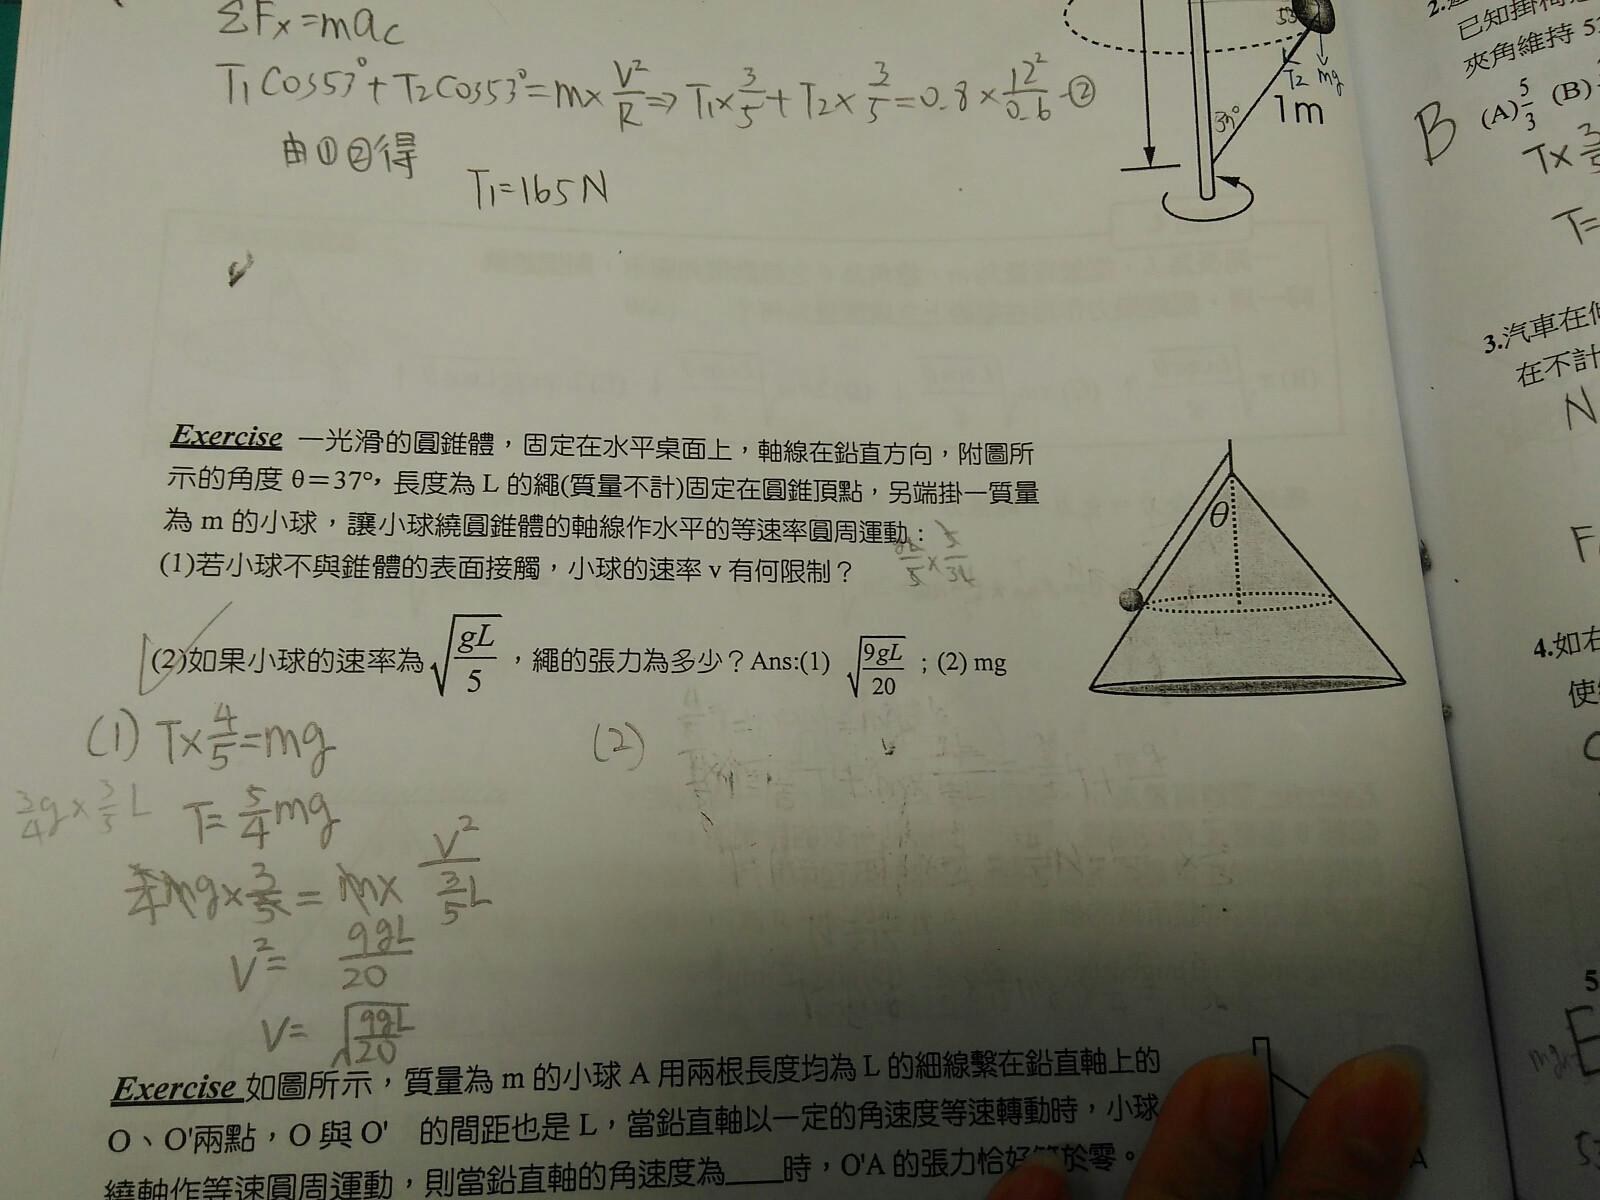 ΣFx=mac
T1 Cos53°+T2Cos53°=m×V²/R⇒T1×3/5+T2×3/5=0.8×12²/0.6-②
由①②得
T1=165N
53
T2 mg
37°
1m
Exercise 一光滑的圓錐體，固定在水平桌面上，軸線在鉛直方向，附圖所
示的角度 θ＝37°，長度為 L 的繩(質量不計)固定在圓錐頂點，另端掛一質量
為 m 的小球，讓小球繞圓錐體的軸線作水平的等速率圓周運動：
(1)若小球不與錐體的表面接觸，小球的速率 v 有何限制？
(2)如果小球的速率為√(gL/5)，繩的張力為多少？Ans:(1) √(9gL/20)；(2) mg
θ
(1) T×4/5=mg
T=5/4mg
3/4g×3/5L
5/4mg×3/5=m×V²/(3/5L)
V²=9gL/20
V=√(9gL/20)
(2)
Exercise 如圖所示，質量為 m 的小球 A 用兩根長度均為 L 的細線繫在鉛直軸上的
O、O'兩點，O 與 O' 的間距也是 L，當鉛直軸以一定的角速度等速轉動時，小球
繞軸作等速圓周運動，則當鉛直軸的角速度為____時，O'A 的張力恰好等於零。
A
2.
已知掛
夾角維持 53
(A)5/3 (B)
B
T×3/5
T=
3.汽車在
在不計
N
F
4.如右
使
5
E
mg